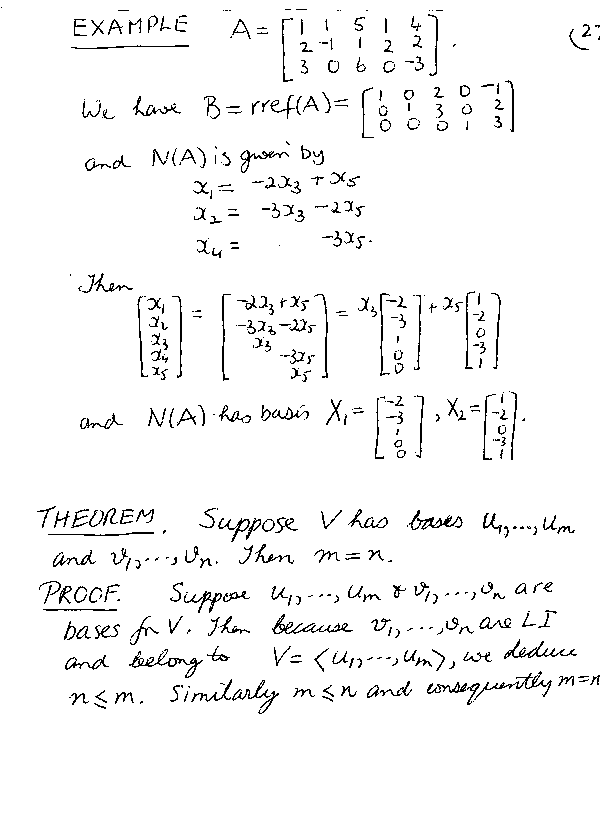 EXAMPLE A = [1 1 5 1 4; 2 -1 1 2 2; 3 0 6 0 -3]. (27
We have B = rref(A) = [1 0 2 0 -1; 0 1 3 0 2; 0 0 0 1 3]
and N(A) is given by
x₁ = -2x₃ + x₅
x₂ = -3x₃ - 2x₅
x₄ = -3x₅.
Then
[x₁; x₂; x₃; x₄; x₅] = [-2x₃ + x₅; -3x₃ - 2x₅; x₃; -3x₅; x₅] = x₃ [-2; -3; 1; 0; 0] + x₅ [1; -2; 0; -3; 1]
and N(A) has basis X₁ = [-2; -3; 1; 0; 0], X₂ = [1; -2; 0; -3; 1].
THEOREM. Suppose V has bases u₁, ..., uₘ
and v₁, ..., vₙ. Then m = n.
PROOF. Suppose u₁, ..., uₘ & v₁, ..., vₙ are
bases for V. Then because v₁, ..., vₙ are LI
and belong to V = ⟨u₁, ..., uₘ⟩, we deduce
n ≤ m. Similarly m ≤ n and consequently m = n